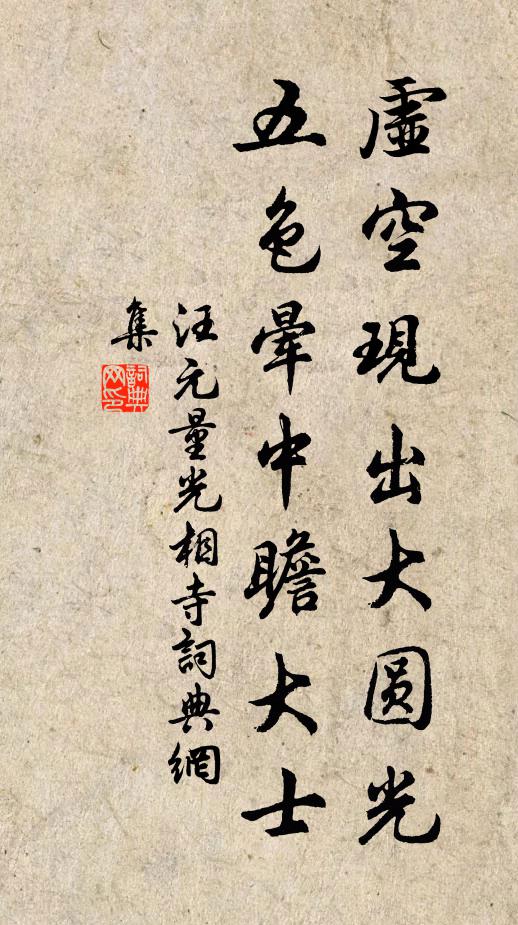 虛空現出大圆光
五色暈中瞻大士
汪元量光相寺詞典網
集
詞典网印